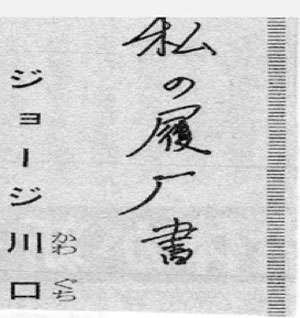 私の履歴書
ジョージ川口
かわぐち